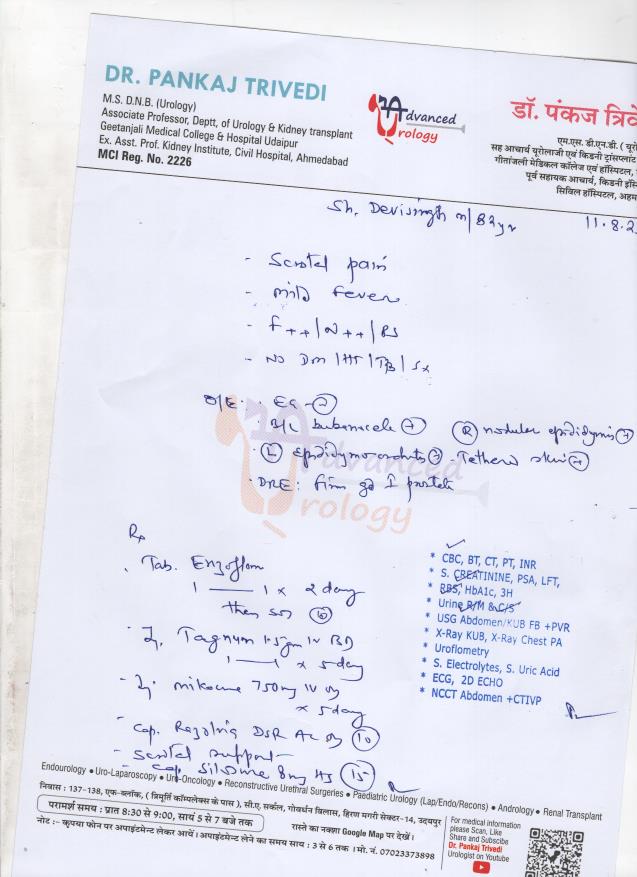 DR. PANKAJ TRIVEDI
M.S. D.N.B. (Urology)
Associate Professor, Deptt, of Urology & Kidney transplant
Geetanjali Medical College & Hospital Udaipur
Ex. Asst. Prof. Kidney Institute, Civil Hospital, Ahmedabad
MCI Reg. No. 2226
Advanced
Urology
डॉ. पंकज त्रिवे
एम.एस. डी.एन.डी. ( यूरो
सह आचार्य यूरोलाजी एवं किडनी ट्रांसप्लांट
गीतांजली मेडिकल कॉलेज एवं हॉस्पिटल,
पूर्व सहायक आचार्य, किडनी इंस्
सिविल हॉस्पिटल, अहम
Sh. Devisingh m/82yr
11.8.2
- Scrotal pain
- mild fever
- F++ | N++ |
- No Dm | HT | TB | Sx
O/E:
(R) nodular epididymis +
(L) epididymoorchitis + - Tethered skin +
DRE: firm gd I prostate
Advanced
Urology
Rx
Tab. Enzoflam
1 — 1 x 2 day
then sos (6)
Inj. 1.5gm IV BD
1 — 1 x 5 day
- Inj. 750mg IV
x 5 day
- Cap. DSR (10)
- Scrotal support
- Cap. 8mg HS (15)
* CBC, BT, CT, PT, INR
* S. CREATININE, PSA, LFT,
* RBS, HbA1c, 3H
* Urine R/M & C/S
* USG Abdomen/KUB FB +PVR
* X-Ray KUB, X-Ray Chest PA
* Uroflometry
* S. Electrolytes, S. Uric Acid
* ECG, 2D ECHO
* NCCT Abdomen +CTIVP
Endourology ● Uro-Laparoscopy ● Uro-Oncology ● Reconstructive Urethral Surgeries ● Paediatric Urology (Lap/Endo/Recons) ● Andrology ● Renal Transplant
निवास : 137-138, एफ-ब्लॉक, ( त्रिमूर्ति कॉम्पलेक्स के पास ), सी.ए. सर्कल, गोवर्धन विलास, हिरण मगरी सेक्टर-14, उदयपुर
परामर्श समय : प्रात 8:30 से 9:00, सायं 5 से 7 बजे तक
रास्ते का नक्शा Google Map पर देखें।
नोट :- कृपया फोन पर अपाइंटमेन्ट लेकर आयें। अपाइंटमेन्ट लेने का समय सायं : 3 से 6 तक । मो. नं. 07023373898
For medical information
please Scan, Like
Share and Subscibe
Dr. Pankaj Trivedi
Urologist on Youtube